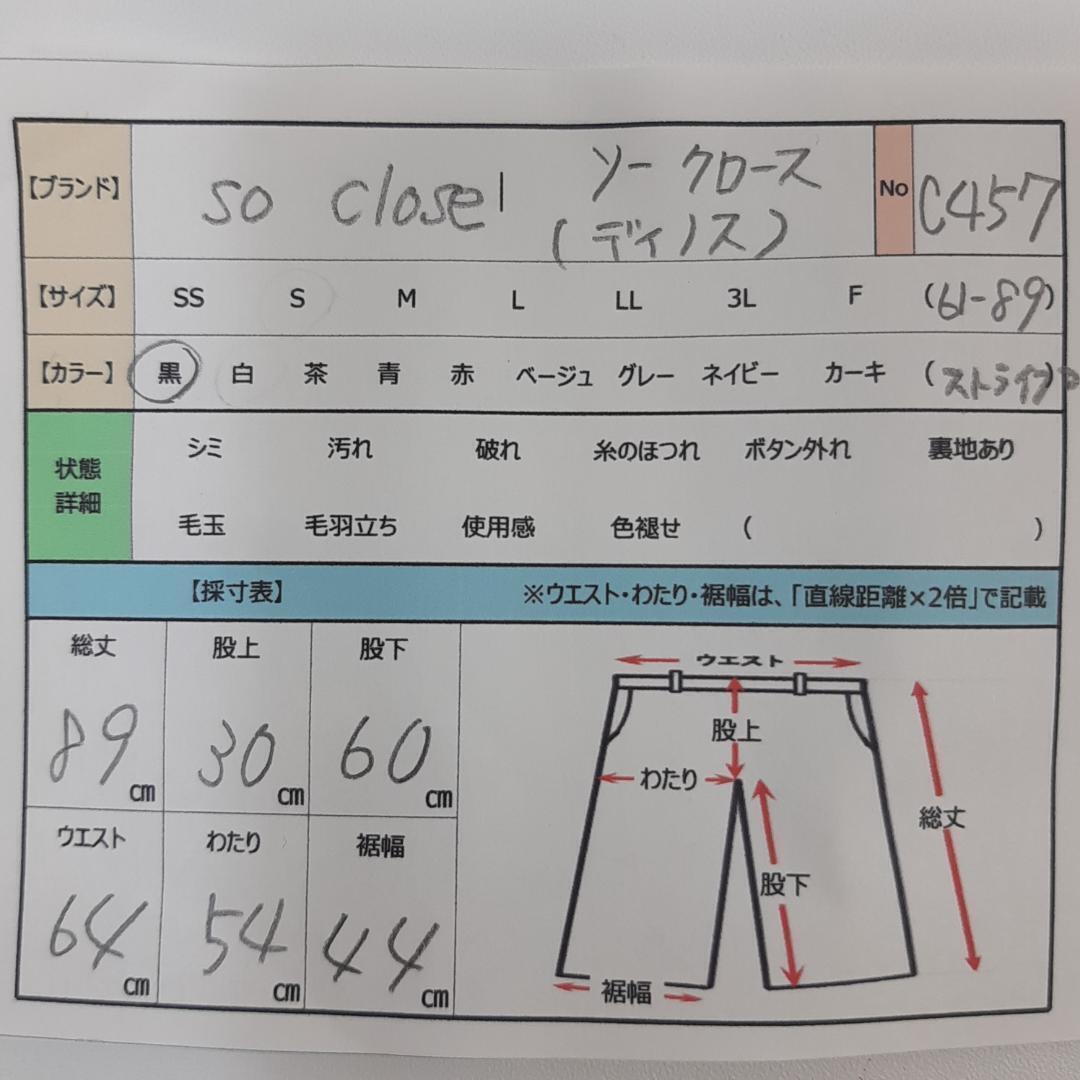 【ブランド】 so close, ソークロース No C457
(ディノス)
【サイズ】 SS S M L LL 3L F (61-89)
【カラー】 黒 白 茶 青 赤 ベージュ グレー ネイビー カーキ (ストライプ)
状態
詳細
シミ 汚れ 破れ 糸のほつれ ボタン外れ 裏地あり
毛玉 毛羽立ち 使用感 色褪せ ( )
【採寸表】 ※ウエスト・わたり・裾幅は、「直線距離×2倍」で記載
総丈 股上 股下
89cm 30cm 60cm
ウエスト わたり 裾幅
64cm 54cm 44cm
ウエスト
股上
わたり
総丈
股下
裾幅